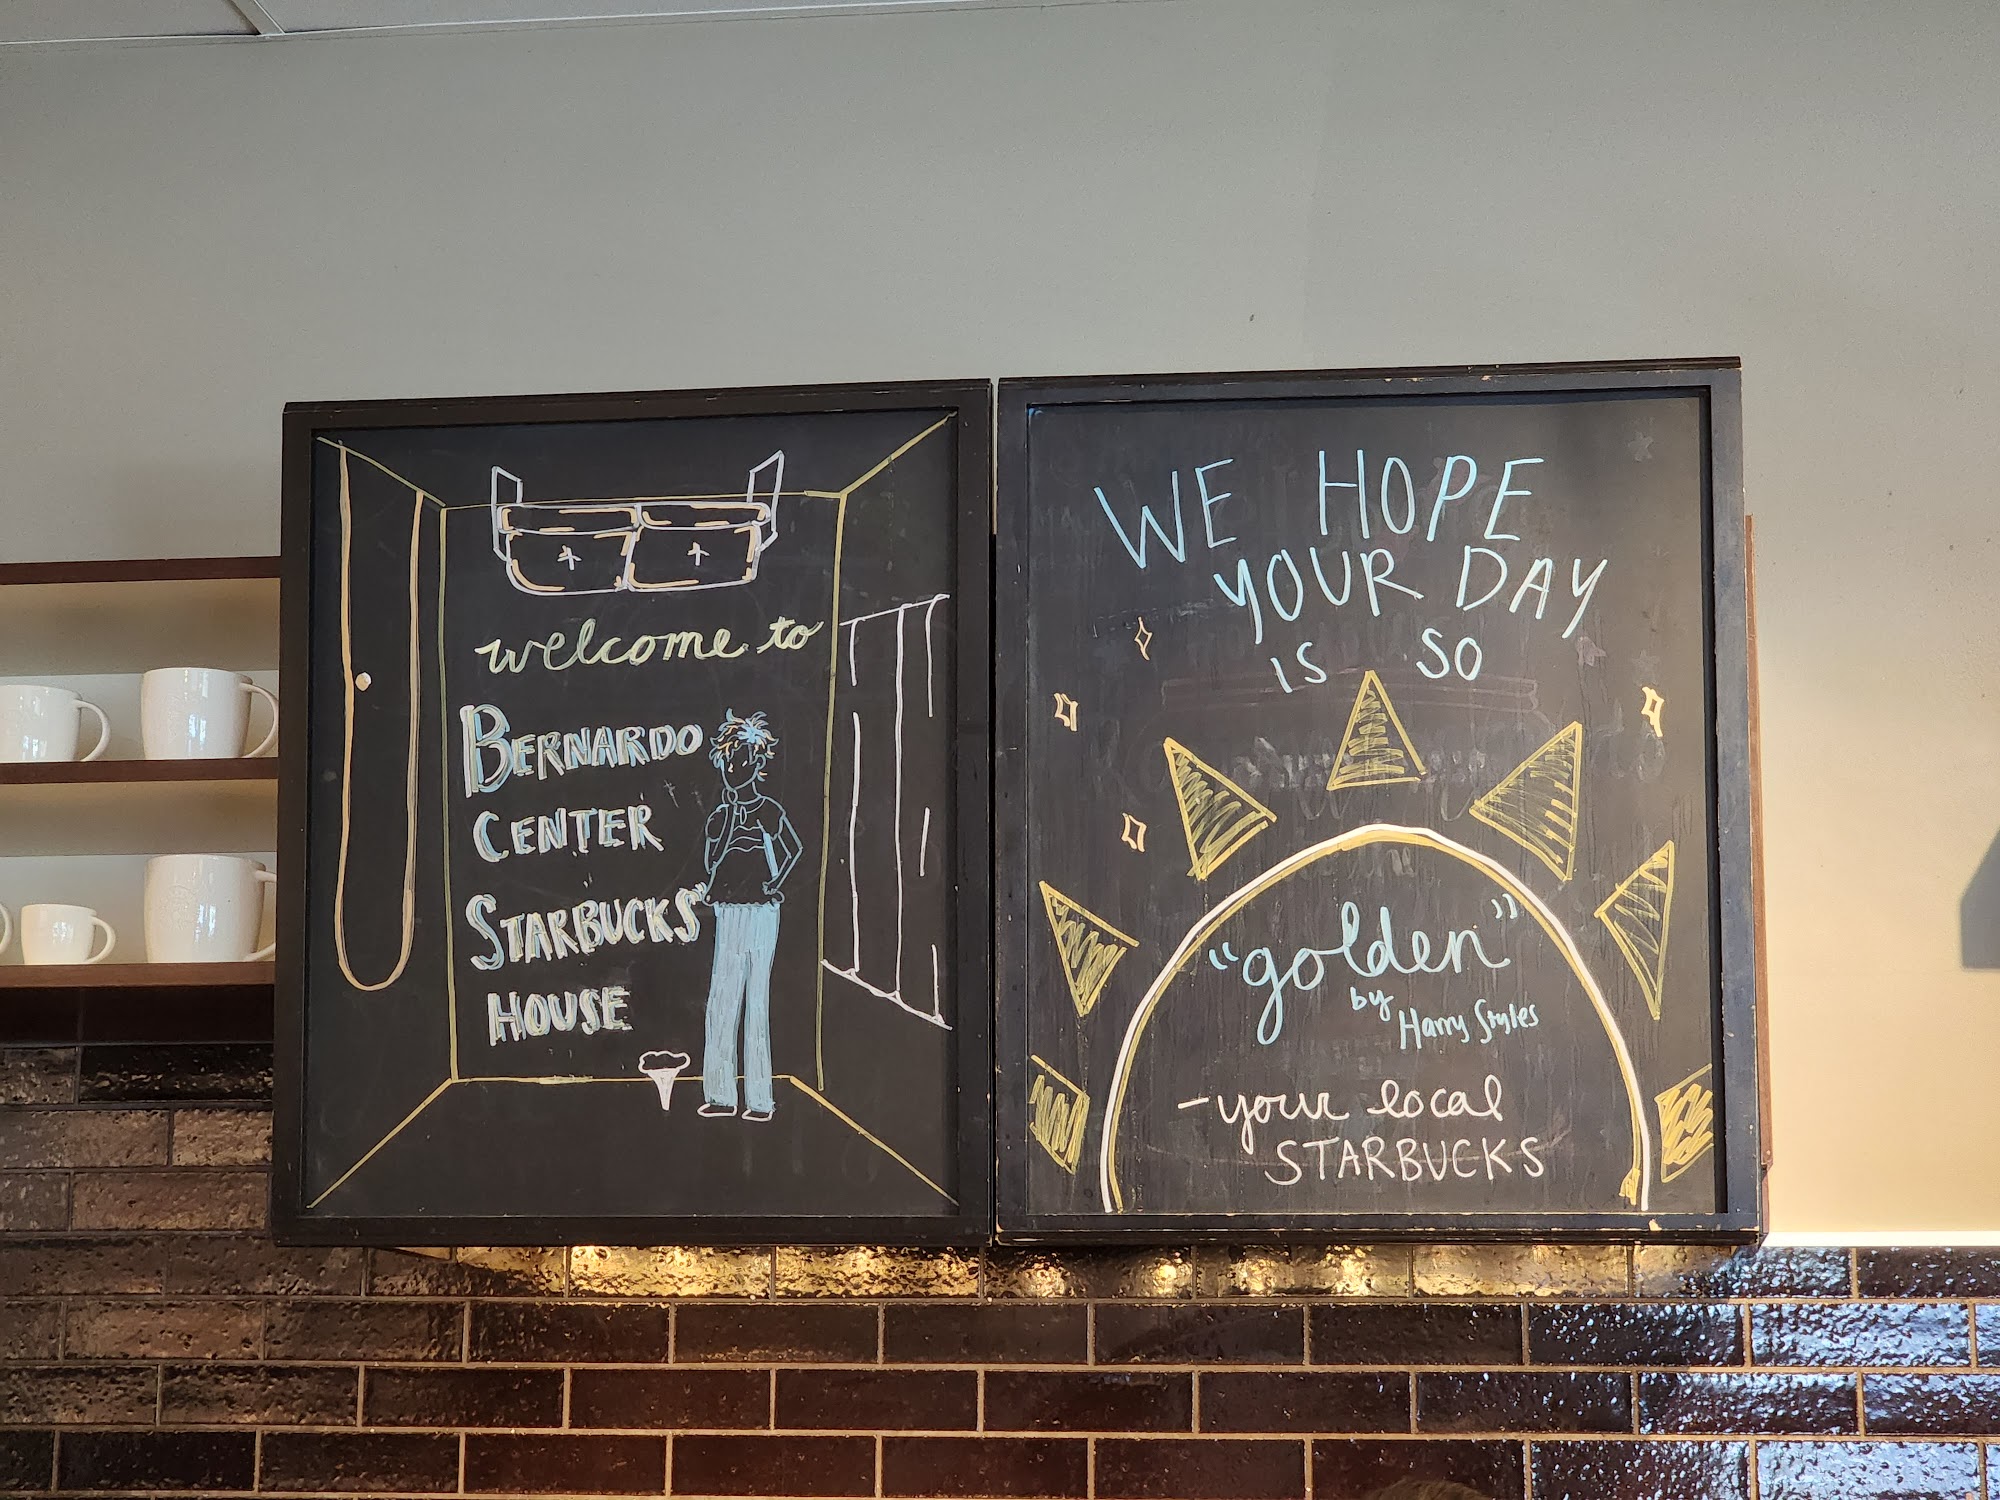 welcome to
BERNARDO
CENTER
STARBUCKS
HOUSE
WE HOPE
YOUR DAY
IS SO
"golden"
by
Harry Styles
-your local
STARBUCKS